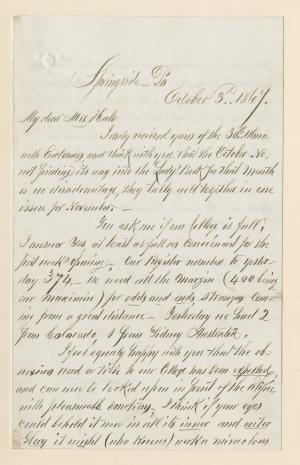 Springside – Pa
October 3rd. 1867.
My dear Mrs Hale
I duly received yours of the 30th
with Enclosures, and think with you, that the October No.
not finding its way into the Lady's Book for that month
is no disadvantage, they tally well together in one
issue for November. –
You ask me if our College is full;
I answer Yes, at least as full as convenient for the
first week's opening – Our Register numbers to yester-
day 374, – we need all the margin (400 being
our maximum) for odds and ends, strangers com-
ing from a great distance – Yesterday we had 2
from Colorado, & 1 from Sidney Australia.
I feel equally happy with you that the ob-
noxious word or title to our College has been expelled,
and can now be looked upon in front of the edifice
with pleasurable emotions – I think if your eyes
could behold it now in all its inner and outer
Glory it might (who knows) work a miraculous